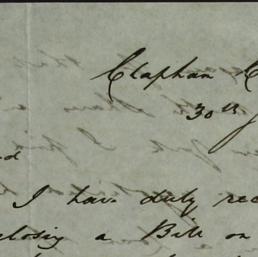 Clapham C
30th J
d
I have duly rec
closig a Bill on